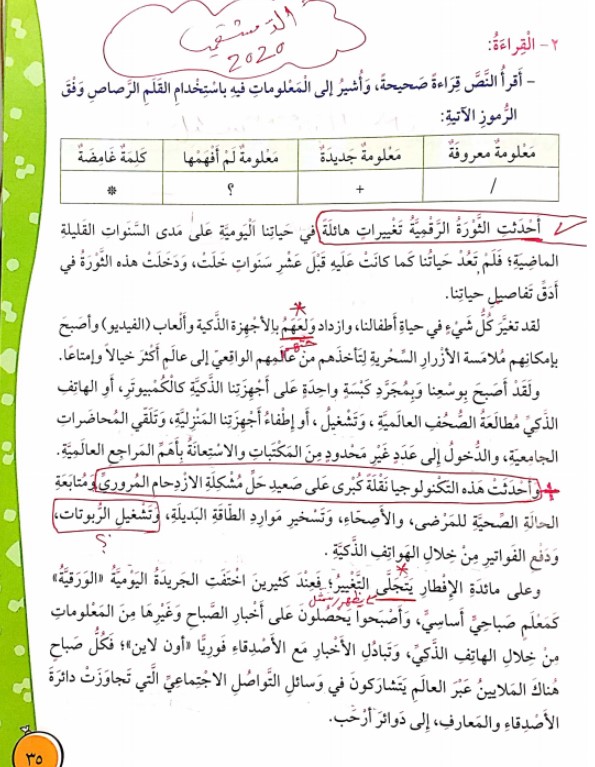 الدمشقي
2020
٢- الْقِراءَةُ:
- أَقرأُ النَّصَّ قِرَاءةً صَحيحةً، وَأُشيرُ إلى المَعْلوماتِ فيهِ باسْتِخْدامِ القَلَمِ الرَّصاصِ وَفْقَ
الرُّموزِ الآتيةِ:
مَعْلومَةٌ معروفَةٌ مَعْلومةٌ جَديدَةٌ مَعْلومَةٌ لَمْ أَفْهَمْها كَلِمَةٌ غَامِضَةٌ
/ + ؟ *
أَحْدَثتِ الثَّوْرَةُ الرَّقْمِيَّةُ تَغْييراتٍ هائلَةً في حَياتِنا اليَوميَّةِ عَلى مَدى السَّنَواتِ القَليلةِ
الماضِيَةِ؛ فَلَمْ تَعُدْ حَياتُنا كَما كانَتْ عَلَيهِ قَبْلَ عَشْرِ سَنَواتٍ خَلَتْ، وَدَخَلَتْ هذه الثَّوْرَةُ في
أدَقِّ تَفاصيلِ حياتِنا.
*
لقد تغيَّرَ كُلُّ شَيْءٍ في حياةِ أطفالنا، وازداد وَلعَهُمُ بالأجْهِزةِ الذَّكيةِ وألعاب (الفيديو) وأصبَحَ
حبّهم
بإمكانِهِم مُلامَسة الأَزْرارِ السِّحْريةِ لِتَأخذَهم مِنْ عالَمِهِم الواقعِيّ إلى عالَمٍ أكثرَ خيالاً وإمتاعًا.
ولَقَدْ أصبَحَ بِوسْعِنا وَبِمُجَرَّدِ كَبْسَةٍ واحِدَةٍ عَلى أَجْهِزَتِنا الذَّكيَّةِ كالْكُمْبيوتَرِ، أو الهاتِفِ
الذكيِّ مُطالَعَةُ الصُّحُفِ العالَميَّةِ، وتَشْغيلُ، أو إِطْفاءُ أَجْهِزَتِنا المَنْزِليَّةِ، وتَلَقّي المُحاضَراتِ
الجامعِيةِ، والدُّخولُ إلى عَدَدٍ غَيْرِ مَحْدودٍ مِنَ المَكْتَباتِ والاسْتِعانَةُ بِأهَمِّ المَراجِعِ العالَميَّةِ.
+ وأَحْدَثَتْ هَذه التِّكْنولوجيا نَقْلَةً كُبْرى عَلى صَعيدِ حَلِّ مُشْكِلَةِ الازْدِحامِ المُروريِّ وَمُتابَعَةِ
الحالَةِ الصِّحيَّةِ للمَرْضى، والأصِحّاءِ، وتَسْخيرِ مَوارِدِ الطَّاقَةِ البَديلَةِ، وَتَشْغيلِ الرُّبوتاتِ،
؟
وَدَفْعِ الفَواتيرِ مِنْ خِلالِ الهَواتِفِ الذَّكيَّةِ.
*
وعلى مائدَةِ الإفْطارِ يَتَجَلّى التَّغْييرُ؛ فَعِنْدَ كَثيرينَ اخْتَفَتِ الجَريدَةُ اليَوْميَّةُ «الوَرَقيَّةُ»
يظهر بشكل
كَمَعْلَمٍ صَباحِيٍّ أساسِيٍّ، وَأَصْبَحوا يَحْصُلونَ عَلى أَخْبارِ الصَّباحِ وَغَيْرِهَا مِنَ المَعْلوماتِ
مِنْ خِلالِ الهاتِفِ الذَّكيِّ، وتَبادُلِ الأَخْبارِ مَعَ الأَصْدِقاءِ فَوريًّا «أون لاين»؛ فَكُلَّ صباحٍ
هُناكَ المَلايينُ عَبْرَ العالَمِ يَتَشارَكونَ في وَسائلِ التَّواصُلِ الاجْتِماعِيِّ الَّتي تَجاوَزَتْ دائرَةَ
الأصْدِقاءِ والمَعارِفِ، إلى دَوائرَ أرْحَبَ.
٣٥